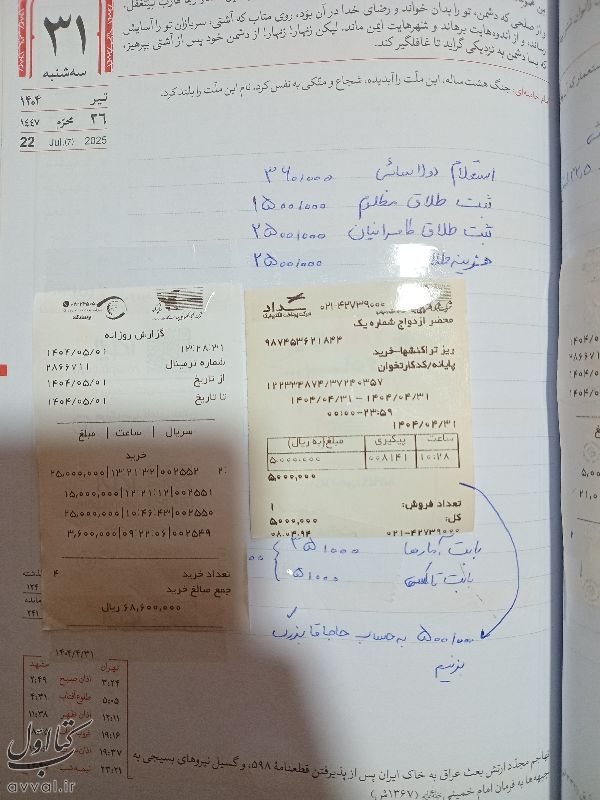 ۳۱
سه‌شنبه
تیر ۱۴۰۴
۲۶ محرّم ۱۴۴۷
22 Jul.(7) 2025
و از صلحی که دشمن، تو را بدان خواند و رضای خدا در آن بود، روی متاب که آشتی، سربازان تو را آسایش
رساند، و از اندوه‌هایت برهاند و شهرهایت ایمن ماند. لیکن زنهار! زنهار! از دشمن خود پس از آشتی بپرهیز،
که بسا دشمن به نزدیکی گراید تا غافلگیر کند.
جنگ هشت‌ساله، این ملّت را آبدیده، شجاع و متّکی به نفس کرد، نام این ملت را بلند کرد.
استعلام ۳۶۰/۰۰۰
ثبت طلاق مظلوم ۱۵۰۰/۰۰۰
ثبت طلاق کامرانیان ۲۵۰۰/۰۰۰
هزینه طلاق ۲۵۰۰/۰۰۰
گزارش روزانه
۱۴۰۴/۰۵/۰۱ ۱۳:۲۸:۳۱
شماره ترمینال ۲۸۶۶۷۱۱
از تاریخ ۱۴۰۴/۰۵/۰۱
تا تاریخ ۱۴۰۴/۰۵/۰۱
سریال | ساعت | مبلغ
خرید
۲۵,۰۰۰,۰۰۰|۱۳:۲۱:۳۲|۰۰۲۵۵۲
۱۵,۰۰۰,۰۰۰|۱۲:۲۱:۱۲|۰۰۲۵۵۱
۲۵,۰۰۰,۰۰۰|۱۰:۴۶:۴۳|۰۰۲۵۵۰
۳,۶۰۰,۰۰۰|۰۹:۲۲:۰۶|۰۰۲۵۴۹
تعداد خرید ۴
جمع مبالغ خرید
۶۸,۶۰۰,۰۰۰ ریال
سداد
۰۲۱-۴۲۷۳۹۰۰۰
محضر ازدواج شماره یک
۹۸۷۴۵۳۶۲۱۸۴۴
ریز تراکنشها-خرید
پایانه/کدکارتخوان
۱۲۲۳۳۴۸۷۴/۳۷۲۴۰۳۵۷
۱۴۰۴/۰۴/۳۱ - ۱۴۰۴/۰۴/۳۱
۰۰:۰۰-۲۳:۵۹
۱۴۰۴/۰۴/۳۱
ساعت پیگیری مبلغ(به ریال)
۱۰:۲۸ ۰۰۸۱۴۱ ۵,۰۰۰,۰۰۰
۵,۰۰۰,۰۰۰
تعداد فروش: ۱
کل: ۵,۰۰۰,۰۰۰
۰۲۱-۴۲۷۳۹۰۰۰ ۰۸.۰۴.۹۴
بابت آمارها ۴۵۰/۰۰۰
بابت تاکسی ۵۰/۰۰۰
۵۰۰/۰۰۰ به حساب حاج‌آقا بزرگ
بزنیم
۱۴۰۴/۴/۳۱
تهران مشهد
۳:۲۴ اذان صبح ۲:۴۹
۵:۰۵ طلوع آفتاب ۴:۳۱
۱۲:۱۱ اذان ظهر ۱۱:۳۸
۱۹:۱۶
۱۹:۳۷
۲۳:۲۱
تهاجم مجدّد ارتش بعث عراق به خاک ایران پس از پذیرفتن قطعنامهٔ ۵۹۸، و گسیل نیروهای بسیجی به
جبهه‌ها به فرمان امام خمینی (۱۳۶۷ش)
کتاب اوّل
avval.ir